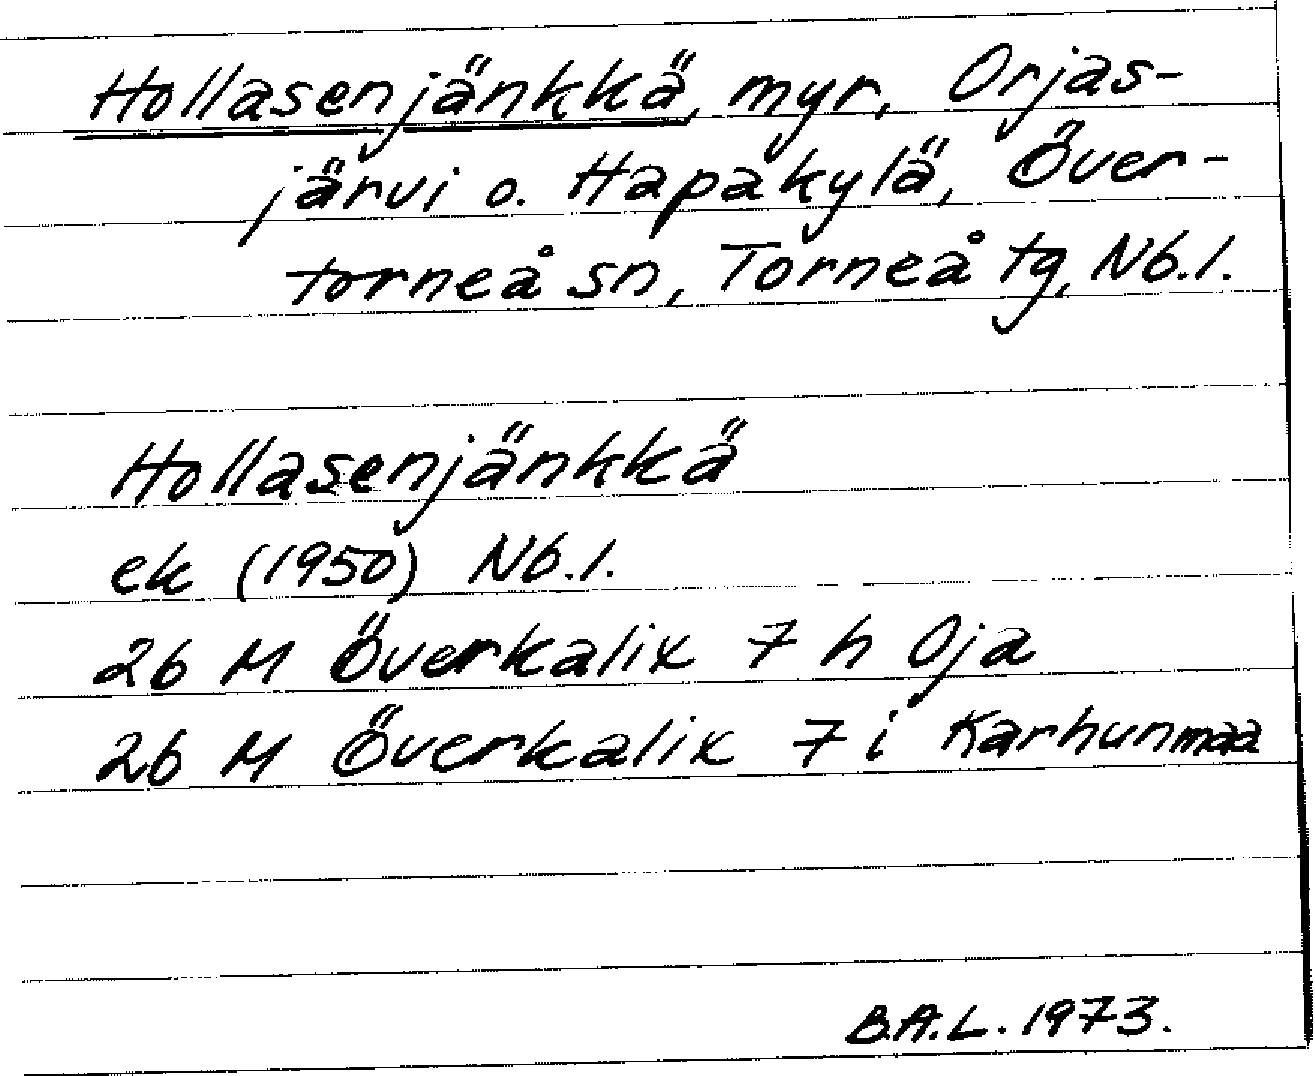 Hollasenjänkkä, myr, Orjas-
järvi o. Hapakylä, Över-
torneå sn, Torneå tg, Nb.l.
Hollasenjänkkä
ek (1950) Nb.l.
26 M Överkalix 7 h Oja
26 M Överkalix 7 i Karhunmaa
B.A.L. 1973.